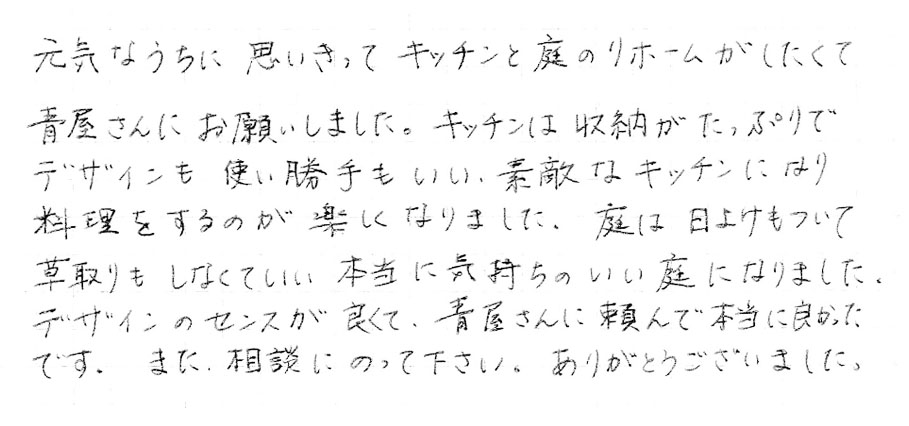 元気なうちに 思いきって キッチンと庭のリホームがしたくて
青屋さんにお願いしました。キッチンは収納がたっぷりで
デザインも使い勝手もいい、素敵なキッチンになり
料理をするのが楽しくなりました、庭は日よけもついて
草取りもしなくていい本当に気持ちのいい庭になりました、
デザインのセンスが良くて、青屋さんに頼んで本当に良かった
です. また、相談にのって下さい。ありがとうございました。